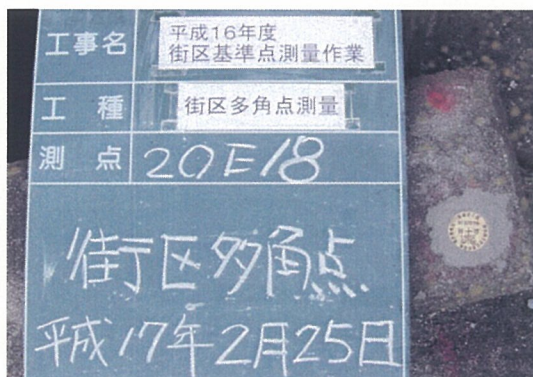 工事名
平成16年度
街区基準点測量作業
工種
街区多角点測量
測点
20E18
街区多角点
平成17年2月25日